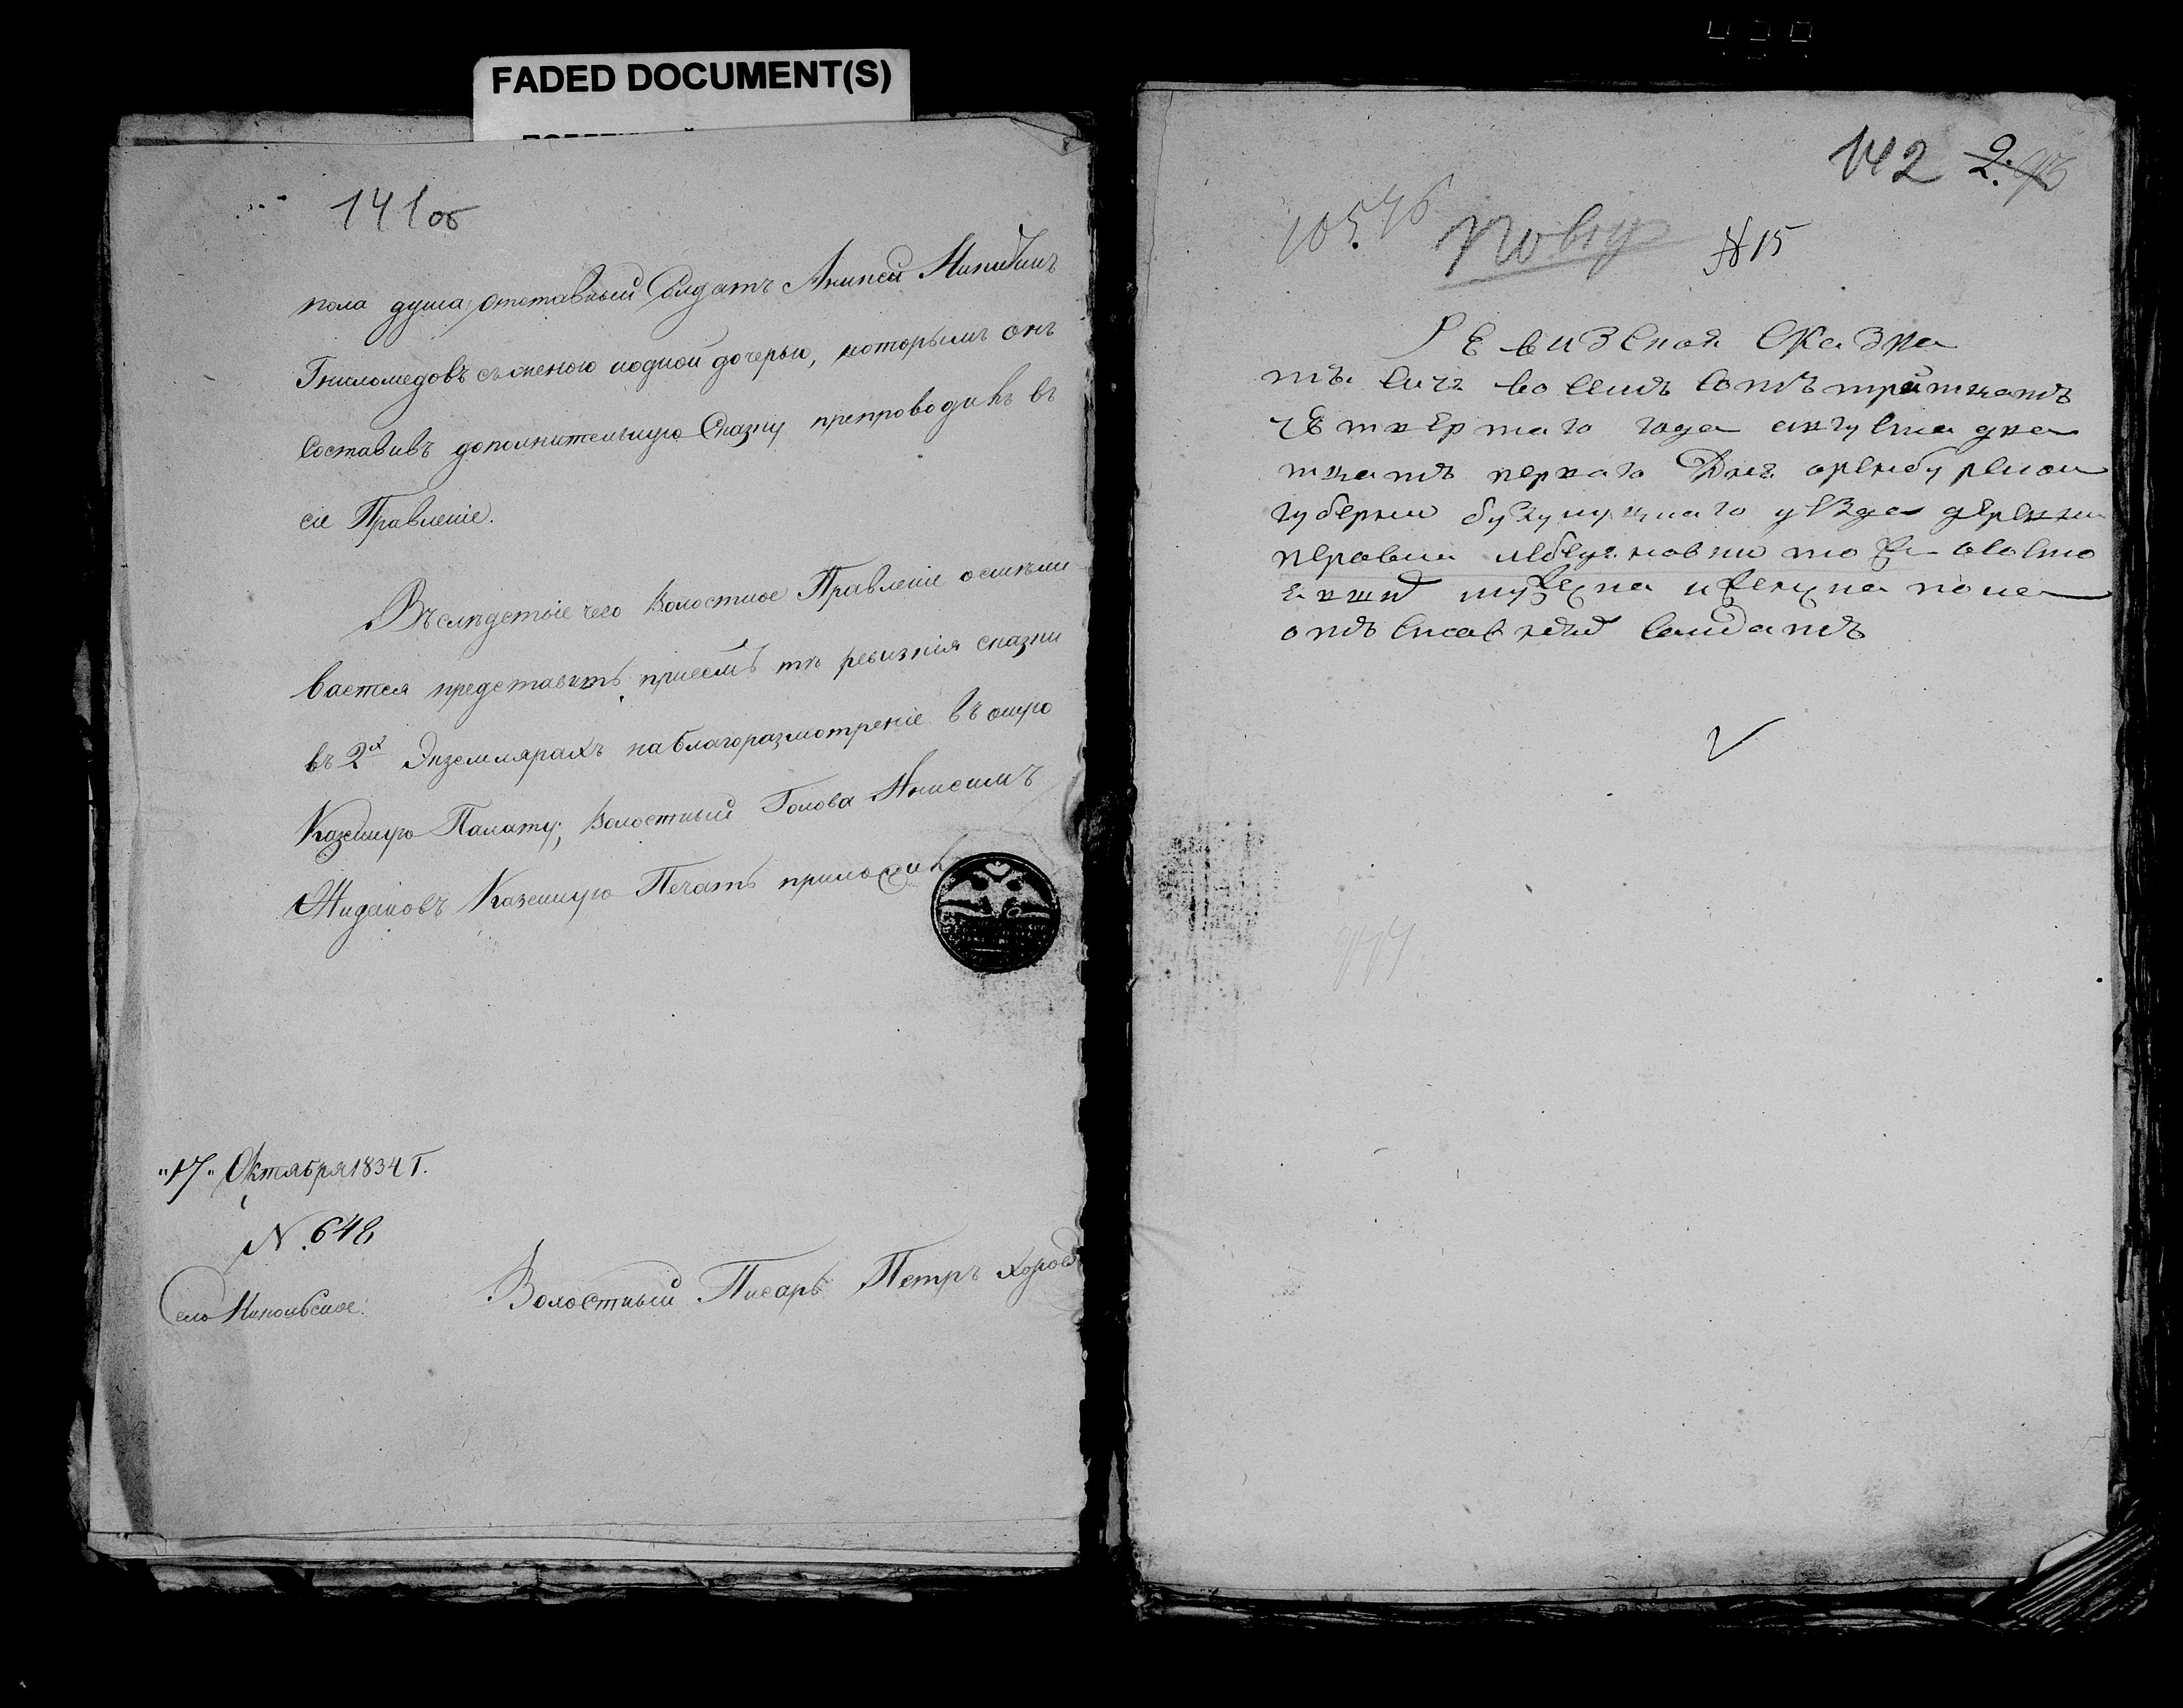 FADED DOCUMENT(S)
141 об
пола душа отставный Солдатъ Аникей Никитинъ
Гниломедовъ съ женою иодной дочерью, которымъ онъ
Составивъ дополнительную Сказку препроводилъ въ
сіе Правленіе.
Въслѣдствіе чего Волостное Правленіе осмѣли
вается представить приемлѣ тѣ ревизкія сказки
въ 2х Экземлярахъ на благоразмотреніе въ оную
Казенную Палату, Волостный Голова Анисимъ
Жидковъ Казенную Печать приложилъ
"17" Октября 1834 Г.
N. 648
Село Никольское.
Волостный Писарь Петръ
142 2.
10576
№ 15
Ревизская сказка
тысяча восемь сотъ тритцать
четвертаго года августа два
тцать перваго Дня оренбурскои
губернии бузулуцкаго уезда деревни
то
мужеска и женска пола
отъ салдатъ